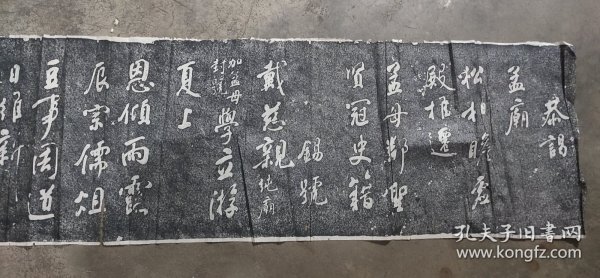 恭謁
孟廟
松柏瞻處
殿推遷
孟母鄒聖
賢冠史籍
錫號
戴慈親
加孟母
封號
學立游
夏上
恩傾雨露
辰宗儒俎
豆事周道
日維新
孔夫子旧书网
www.kongfz.com